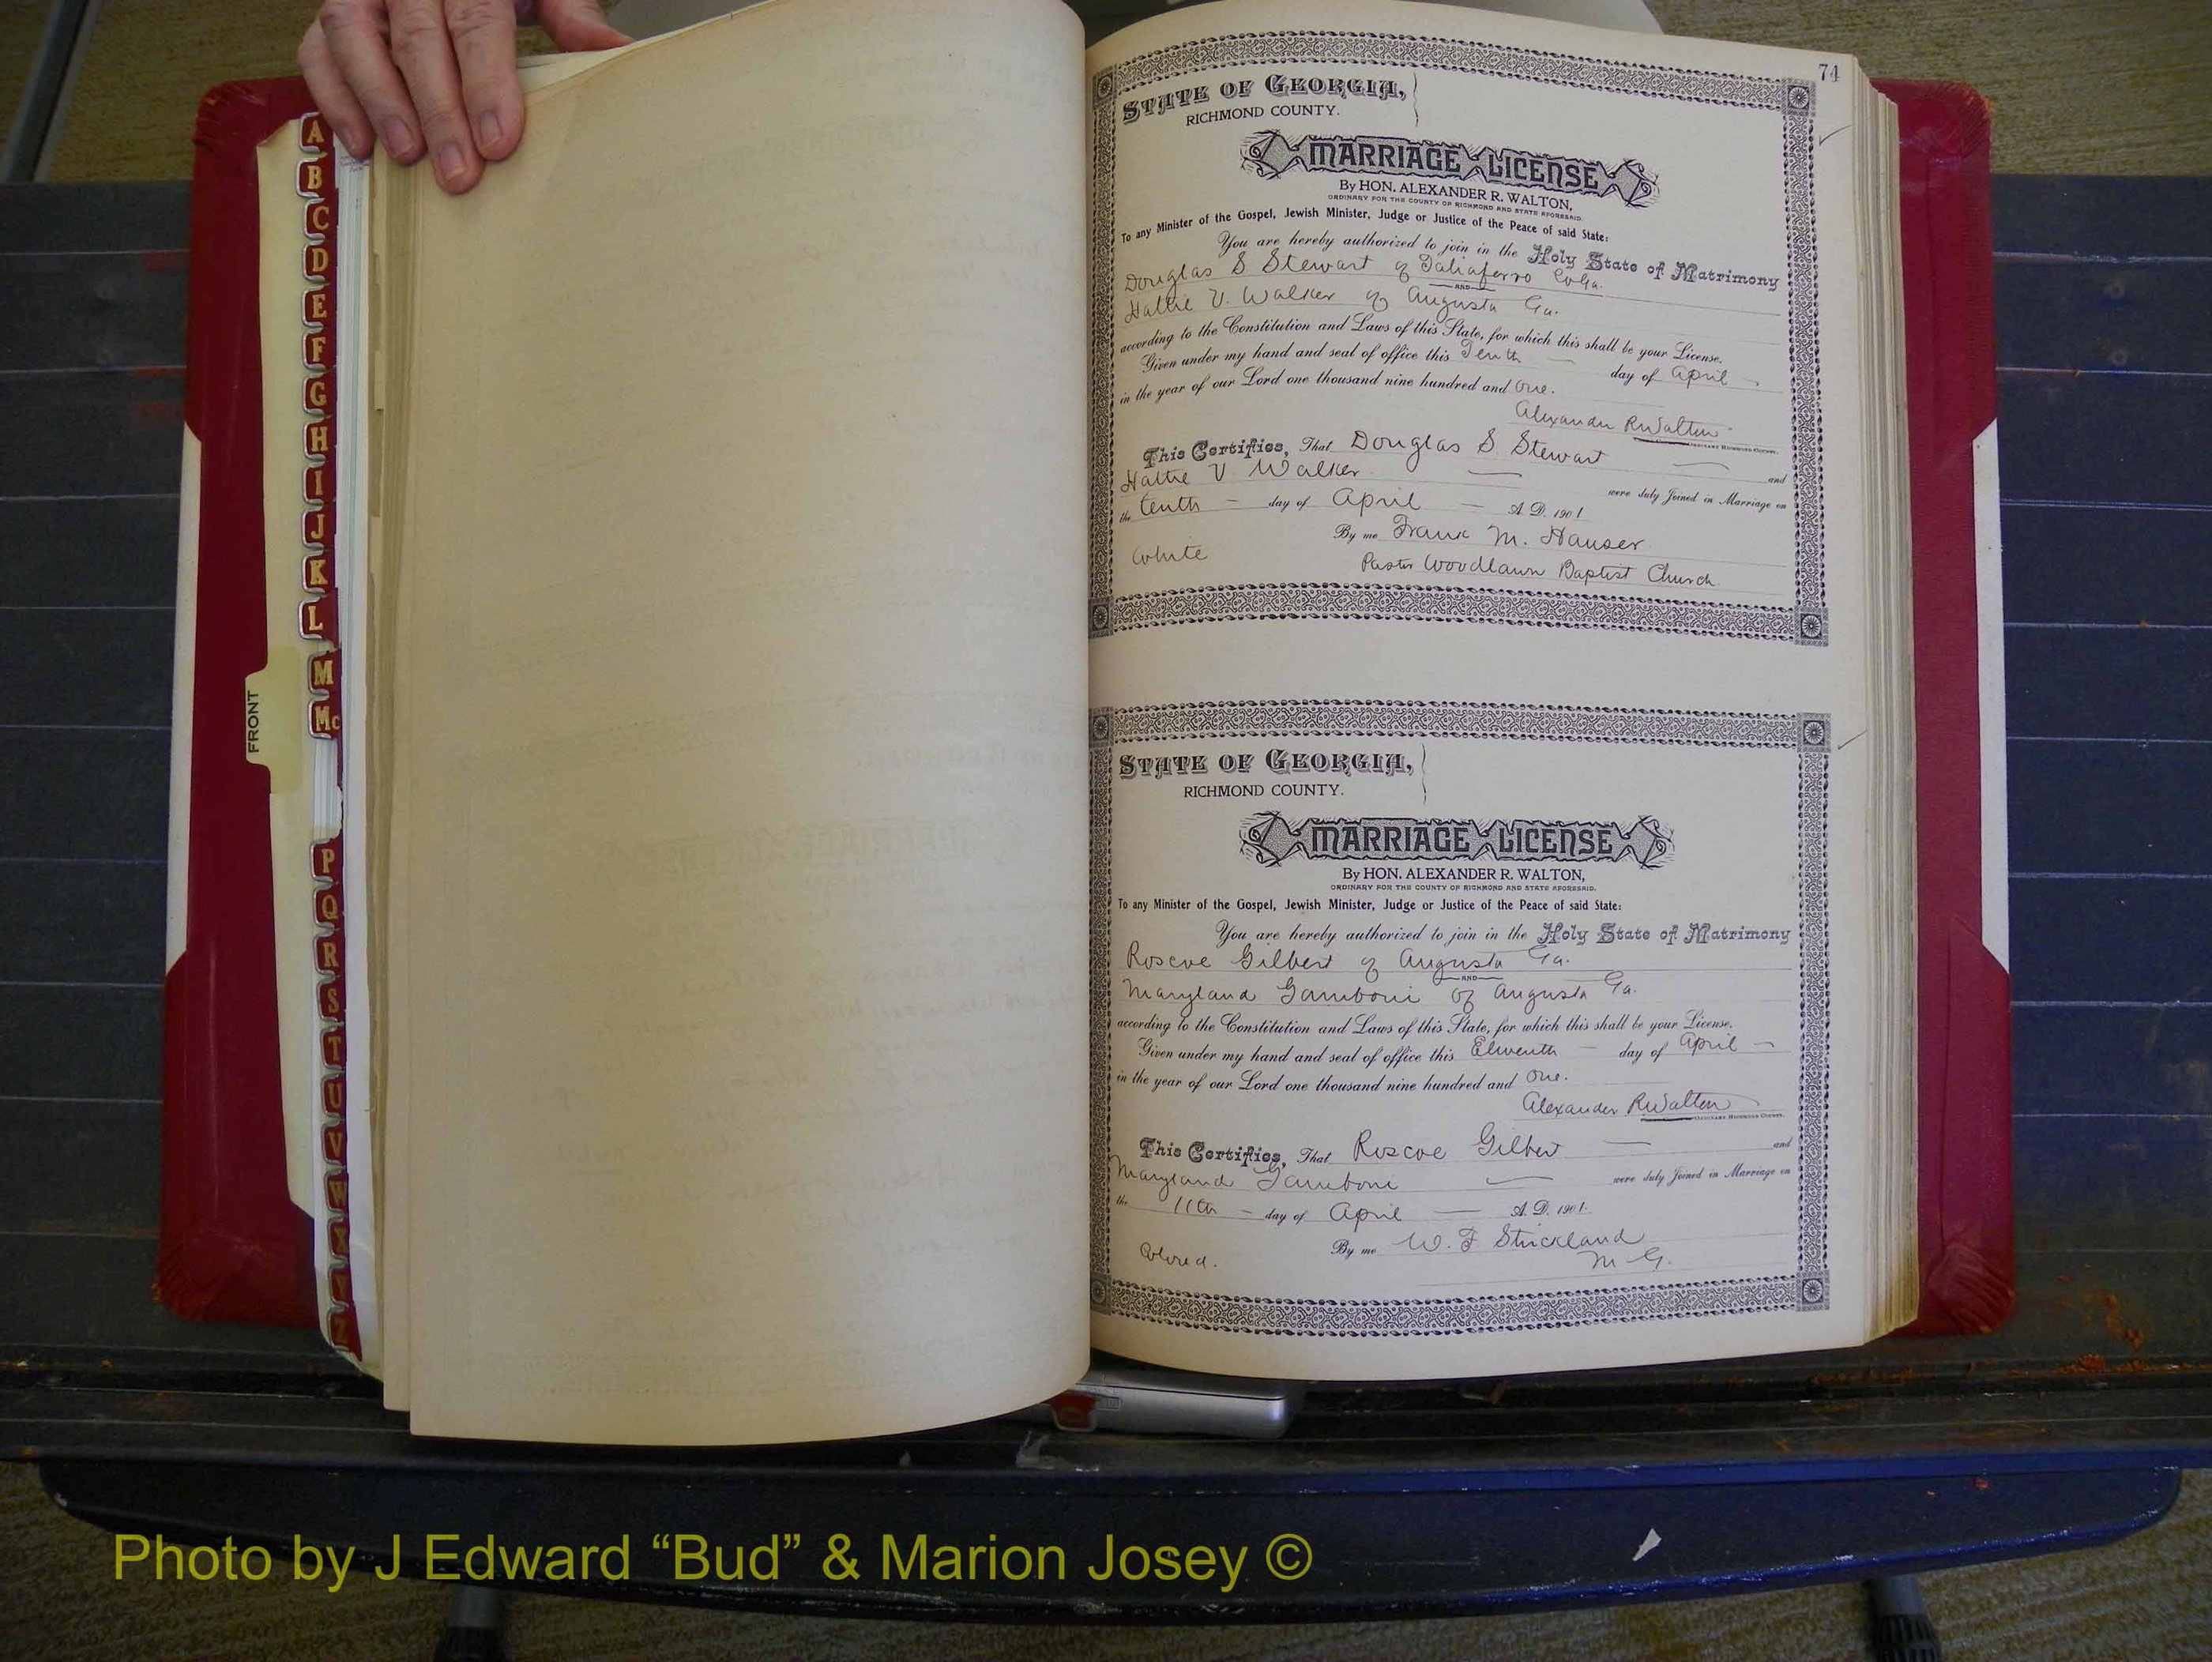 74
STATE OF GEORGIA,
RICHMOND COUNTY.
MARRIAGE LICENSE
By HON. ALEXANDER R. WALTON,
ORDINARY FOR THE COUNTY OF RICHMOND AND STATE AFORESAID.
To any Minister of the Gospel, Jewish Minister, Judge or Justice of the Peace of said State:
You are hereby authorized to join in the Holy State of Matrimony
Douglas S Stewart of Taliaferro Co Ga.
AND
Hattie V. Walker of Augusta Ga.
according to the Constitution and Laws of this State, for which this shall be your License.
Given under my hand and seal of office this Tenth day of April
in the year of our Lord one thousand nine hundred and One.
Alexander R Walton
ORDINARY RICHMOND COUNTY.
This Certifies, That Douglas S Stewart and
Hattie V. Walker were duly Joined in Marriage on
the tenth day of April A. D. 1901
By me Frank M. Hauser
White Pastor Woodlawn Baptist Church
STATE OF GEORGIA,
RICHMOND COUNTY.
MARRIAGE LICENSE
By HON. ALEXANDER R. WALTON,
ORDINARY FOR THE COUNTY OF RICHMOND AND STATE AFORESAID.
To any Minister of the Gospel, Jewish Minister, Judge or Justice of the Peace of said State:
You are hereby authorized to join in the Holy State of Matrimony
Roscoe Gilbert of Augusta Ga.
AND
Maryland Gamboni of Augusta Ga.
according to the Constitution and Laws of this State, for which this shall be your License.
Given under my hand and seal of office this Eleventh day of April
in the year of our Lord one thousand nine hundred and One.
Alexander R Walton
ORDINARY RICHMOND COUNTY.
This Certifies, That Roscoe Gilbert and
Maryland Gamboni were duly Joined in Marriage on
the 11th day of April A. D. 1901.
By me W. F. Strickland
Colored. M G.
A
B
C
D
E
F
G
H
I
J
K
L
M
Mc
FRONT
P
Q
R
S
T
U
V
W
X
Y
Z
Photo by J Edward “Bud” & Marion Josey ©